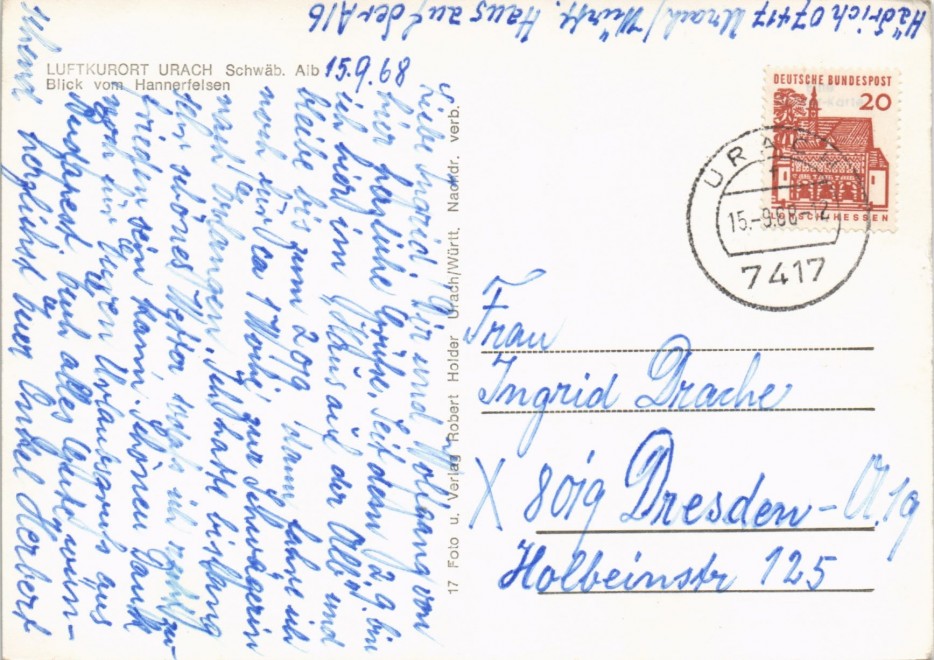 Hädrich 07417 Urach/Württ. Haus auf der Alb
LUFTKURORT URACH Schwäb. Alb
Blick vom Hannerfelsen
15.9.68
Liebe Ingrid! Dir und Wolfgang von
hier herzliche Grüße. Seit dem 2.9. bin
ich hier im Haus auf der Alb und
bleibe bis zum 20.9. Dann fahre ich
noch für ca 1 Woche zur Schwägerin
nach Erlangen. Ich hatte bislang
sehr schönes Wetter, so daß ich recht zu-
frieden sein kann. Schönen Dank
noch für Euren Urlaubsgruß aus
Budapest. Euch alles Gute wün-
schend herzlichst Euer Onkel Herbert
17 Foto u. Verlag Robert Holder Urach/Württ. Nachdr. verb.
DEUTSCHE BUNDESPOST
20
LORSCH HESSEN
URACH
1
15.-9.68-12
7417
Frau
Ingrid Drache
X 8019 Dresden-A.19
Holbeinstr 125